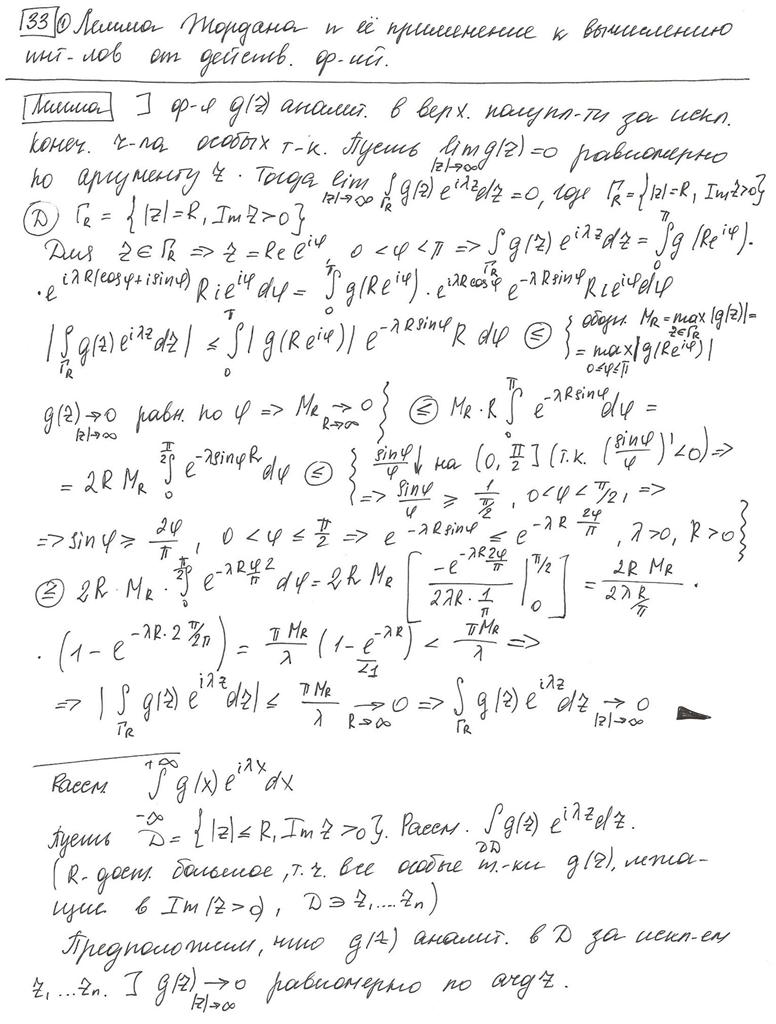 33 ① Лемма Жордана и её применение к вычислению
инт-лов от действ. ф-ий.
Лемма ] ф-я g(z) аналит. в верх. полупл-ти за искл.
конеч. ч-ла особых т-к. Пусть lim_{|z|→∞} g(z)=0 равномерно
по аргументу z. Тогда lim_{|z|→∞} ∫_{Γ_R} g(z) e^{iλz}dz=0, где Γ_R={|z|=R, Imz>0}
Ⓓ Γ_R = {|z|=R, Imz>0}
Для z∈Γ_R => z=Re e^{iφ}, 0<φ<π => ∫_{Γ_R} g(z) e^{iλz}dz = ∫_0^π g(Re^{iφ})·
·e^{iλR(cosφ+isinφ)} Rie^{iφ}dφ = ∫_0^π g(Re^{iφ})·e^{iλRcosφ} e^{-λRsinφ} Rie^{iφ}dφ
|∫_{Γ_R} g(z)e^{iλz}dz| ≤ ∫_0^π |g(Re^{iφ})| e^{-λRsinφ} R dφ ≤ { обозн. M_R=max_{z∈Γ_R}|g(z)|=
=max_{0≤φ≤π}|g(Re^{iφ})|
g(z)→0_{|z|→∞} равн. по φ => M_R→0_{R→∞} } ≤ M_R·R ∫_0^π e^{-λRsinφ}dφ =
= 2R M_R ∫_0^{π/2} e^{-λsinφR}dφ ≤ { sinφ/φ ↓ на (0, π/2] (т.к. (sinφ/φ)'<0) =>
=> sinφ/φ ≥ 1/(π/2), 0<φ<π/2, =>
=> sinφ ≥ 2φ/π, 0<φ≤π/2 => e^{-λRsinφ} ≤ e^{-λR 2φ/π}, λ>0, R>0 }
≤ 2R·M_R·∫_0^{π/2} e^{-λR φ2/π}dφ = 2R M_R [ -e^{-λR2φ/π} / (2λR·1/π) |_0^{π/2} ] = 2R M_R / (2λR/π) ·
·(1-e^{-λR·2 π/2π}) = πM_R/λ (1-e^{-λR}) < πM_R/λ =>
<1
=> |∫_{Γ_R} g(z) e^{iλz}dz| ≤ πM_R/λ →0_{R→∞} => ∫_{Γ_R} g(z) e^{iλz}dz →0_{|z|→∞}
Рассм. ∫_{-∞}^{+∞} g(x)e^{iλx}dx
Пусть D={|z|≤R, Imz>0}. Рассм. ∫_{∂D} g(z) e^{iλz}dz.
(R-дост. большое, т.ч. все особые т.-ки g(z), лежа-
щие в Im(z>0), D∋z,....z_n)
Предположим, что g(z) аналит. в D за искл-ем
z,...z_n. ] g(z)→0_{|z|→∞} равномерно по argz.